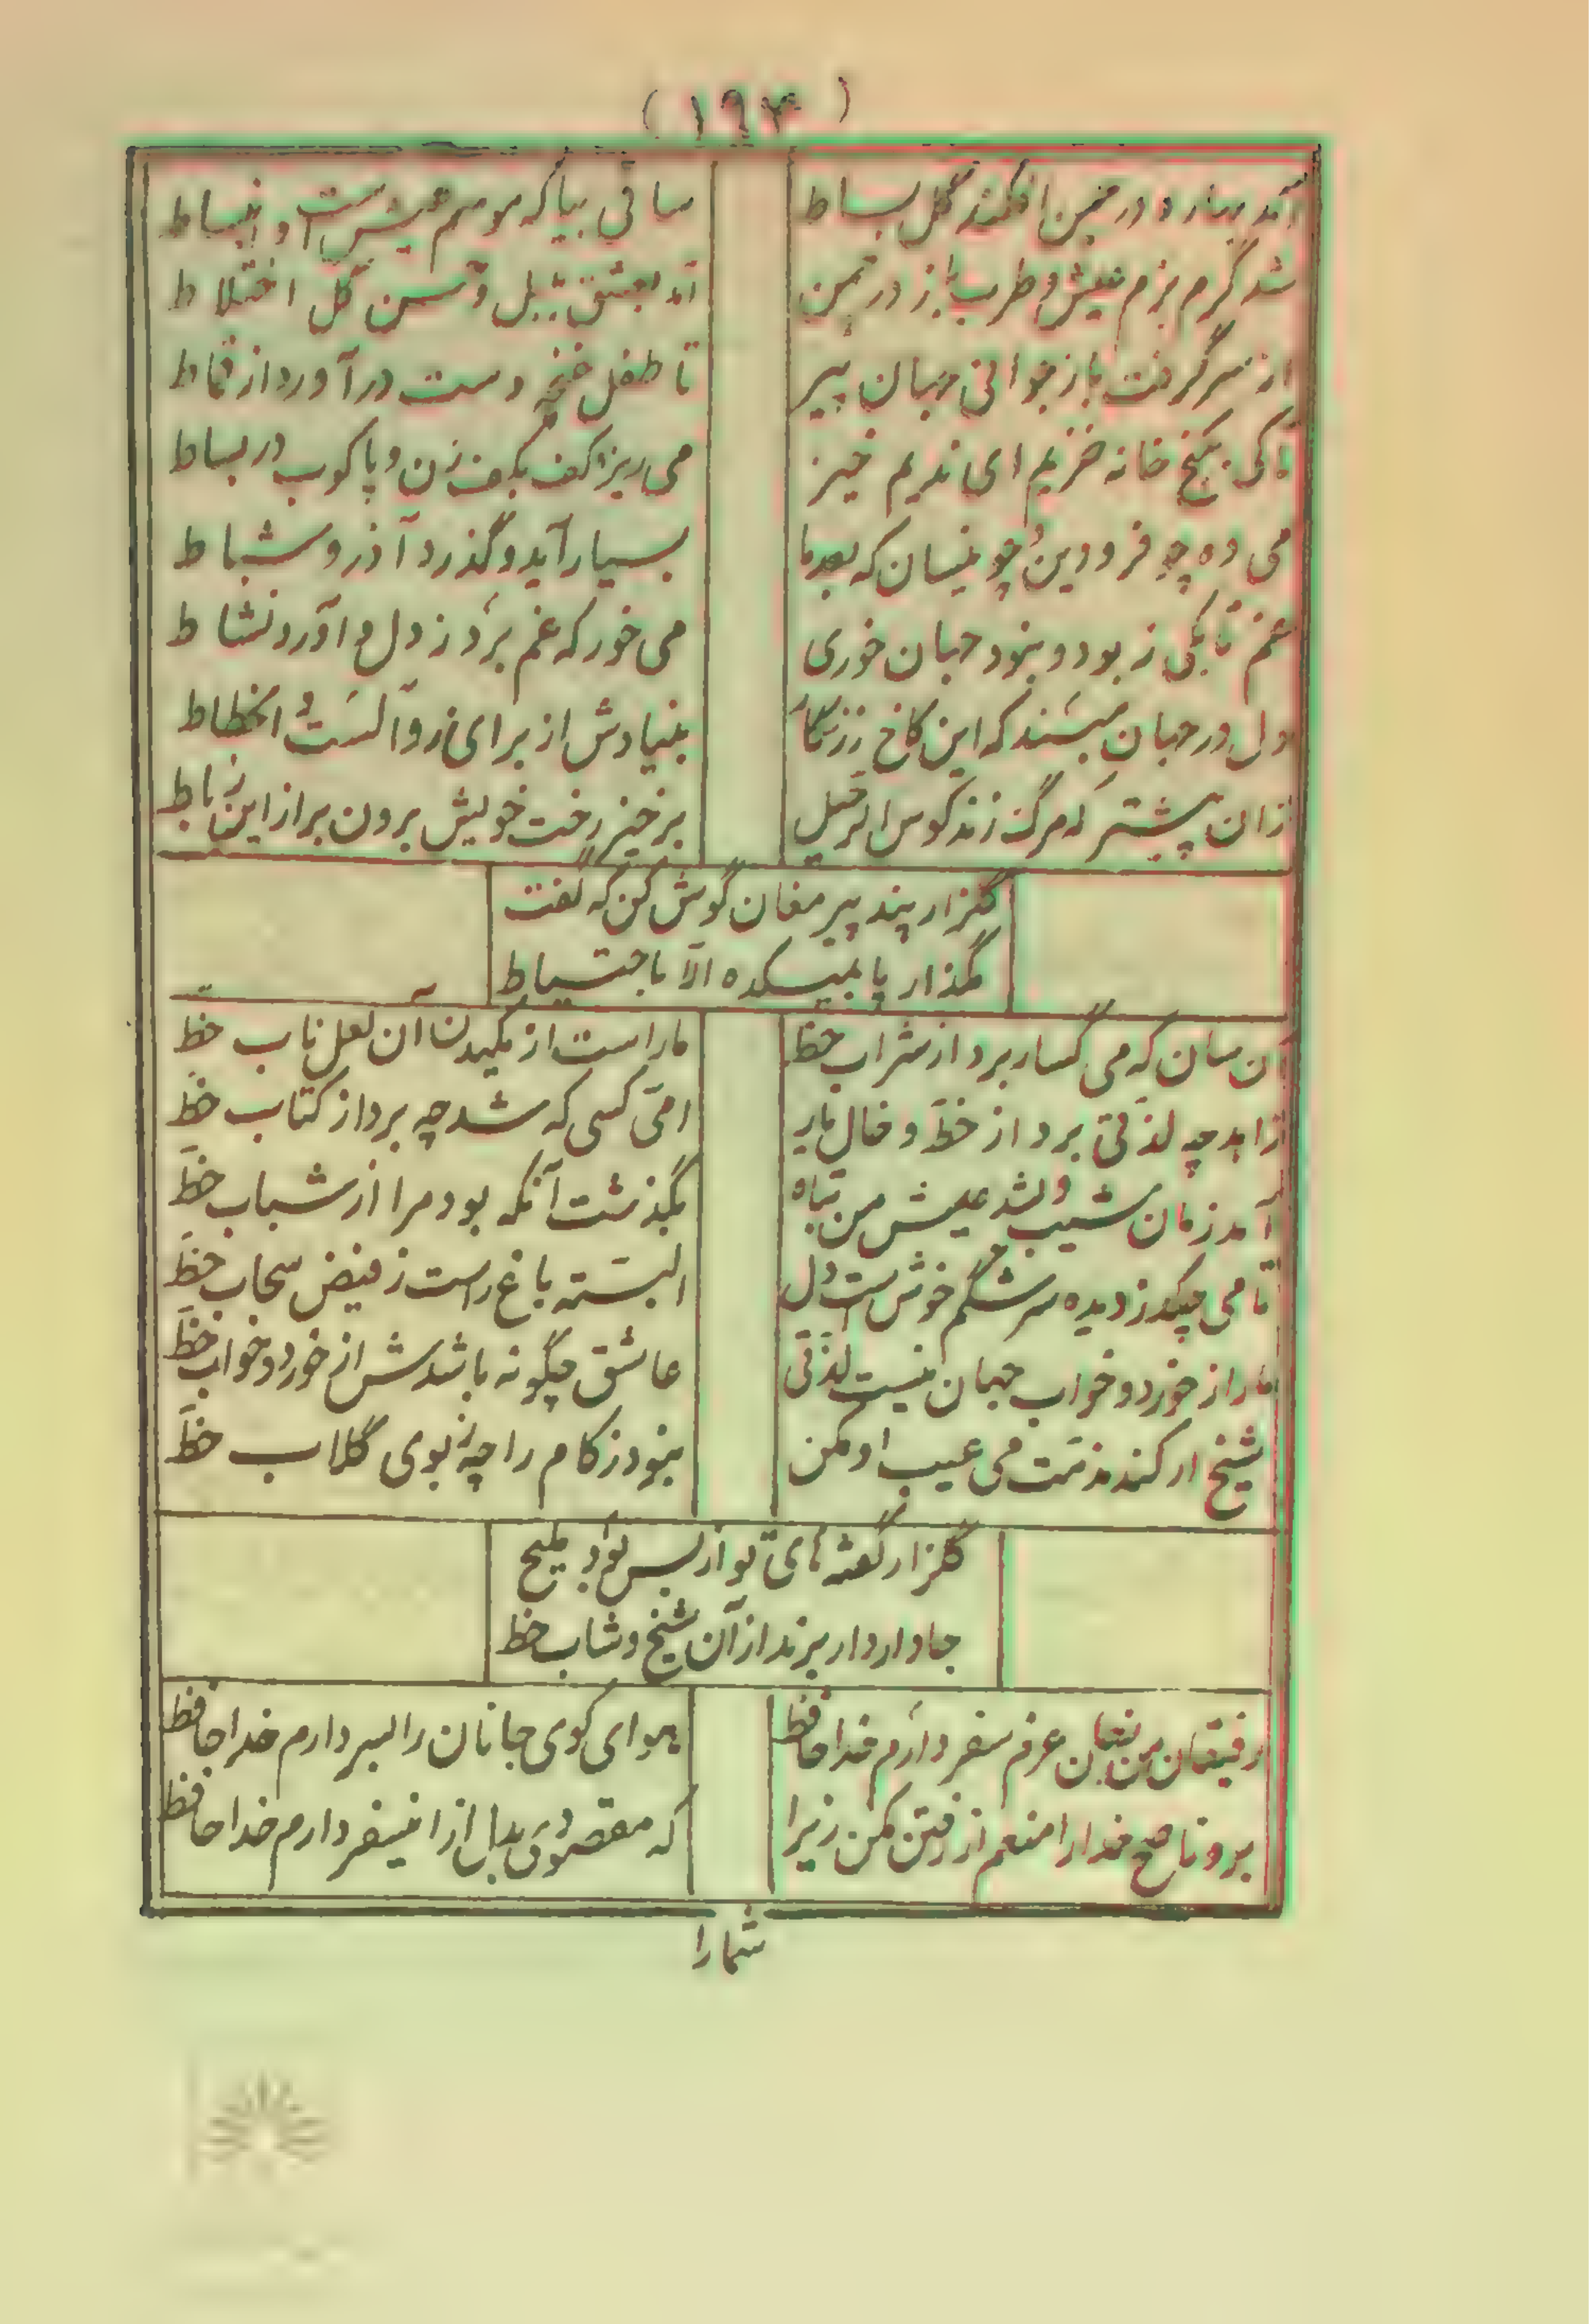 (۱۹۳)
آمد بهار و در چمن افکند گل بساط
ساقی بیا که موسم عیش است و انبساط
شد گرم بزم عیش و طرب باز در چمن
آمد بعشق بلبل و حسن گل اختلاط
از سر گرفت باز جوانی جهان پیر
تا طفل غنچه دست درآورد از قماط
تا کی بکنج خانه خزیم ای ندیم خیز
می ریز و کف بکف زن و پا کوب در بساط
می ده چه فرودین و چو نیسان که بعد ما
بسیار آید و گذرد آذر و شباط
غم تا بکی ز بود و نبود جهان خوری
می خور که غم برد ز دل و آورد نشاط
دل در جهان مبند که این کاخ زرنگار
بنیادش از برای زوال است و انحطاط
زان پیشتر که مرگ زند کوس الرحیل
برخیز رخت خویش برون بر از این رباط
گلزار پند پیر مغان گوش کن که گفت
مگذار پا بمیکده الا باحتیاط
آن سان که می گسار برد از شراب حظ
ما راست از مکیدن آن لعل ناب حظ
زاهد چه لذتی برد از خط و خال یار
امی کسی که شد چه برد از کتاب حظ
آمد زمان شیب و شد عیش من تباه
بگذشت آنکه بود مرا از شباب حظ
تا می چکد ز دیده سرشگم خوش است دل
البته باغ راست ز فیض سحاب حظ
ما را ز خورد و خواب جهان نیست لذتی
عاشق چگونه باشدش از خورد و خواب حظ
شیخ ار کند مذمت می عیب او مکن
نبود زکام را چه ز بوی گلاب حظ
گلزار گفته های تو از بس بود ملیح
جا دارد ار برند از آن شیخ و شاب حظ
رفیقان من عزم سفر دارم خدا حافظ
هوای کوی جانان را بسر دارم خدا حافظ
برو ناصح خدا را منعم از رفتن مکن زیرا
که مقصودی بدل از این سفر دارم خدا حافظ
شما را